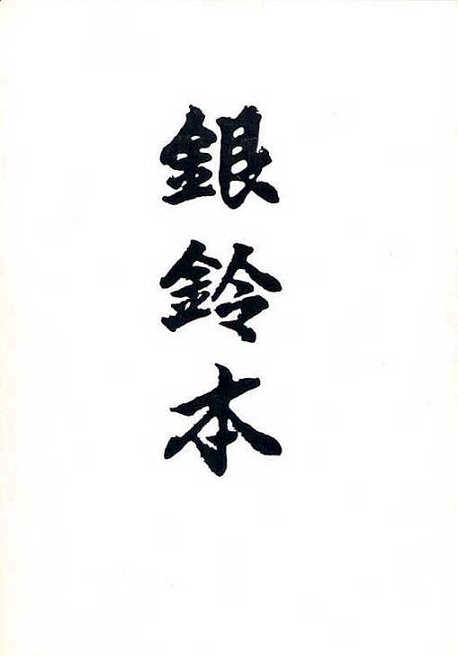 銀鈴本